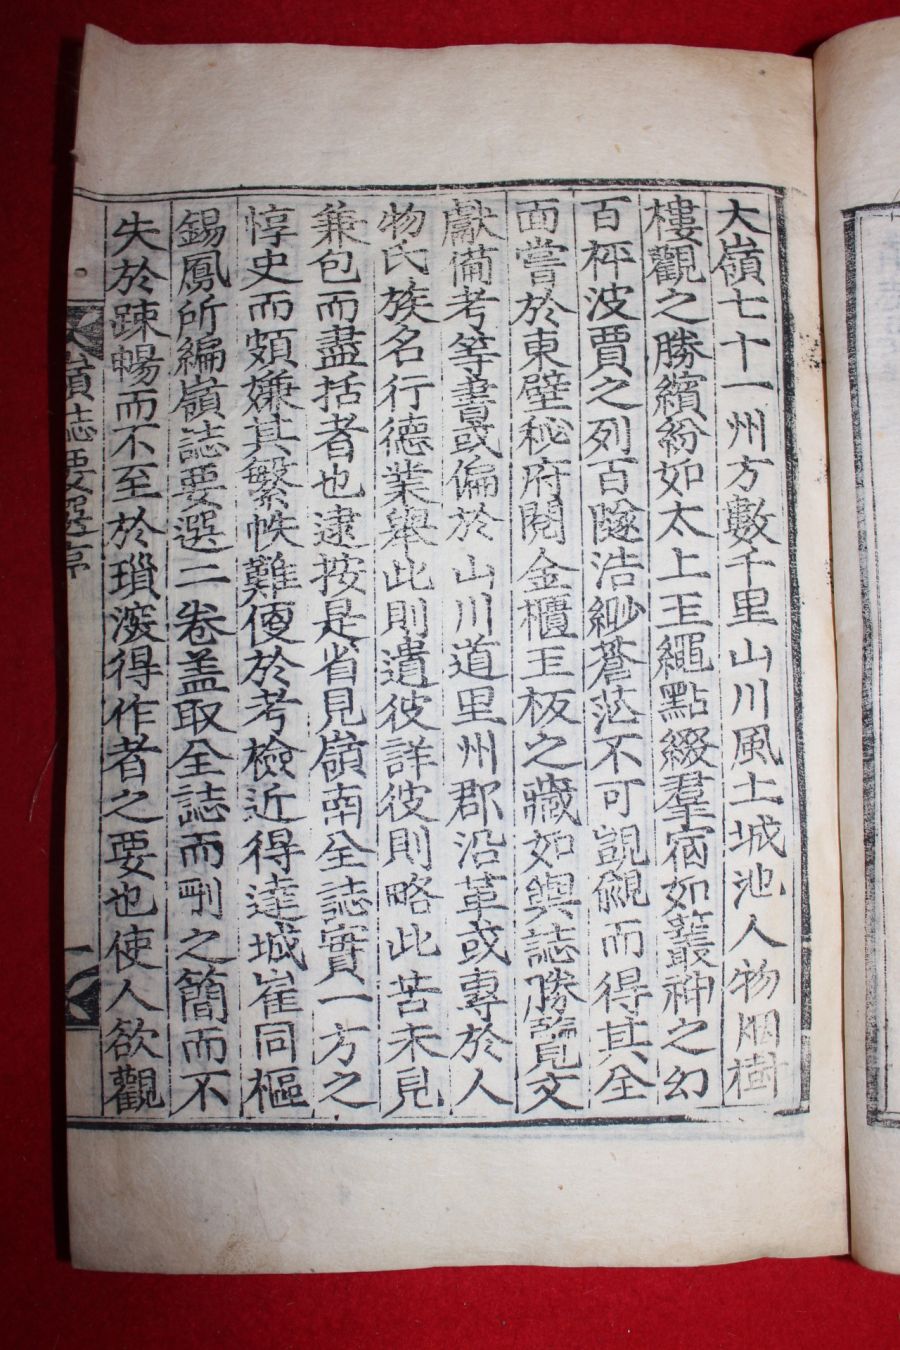 大嶺七十一州方數千里山川風土城池人物烟樹
樓觀之勝繽紛如太上玉繩點綴羣宿如叢神之幻
百枰波賈之列百隧浩緲蒼茫不可覬覦而得其全
面嘗於東壁秘府閱金櫃玉板之藏如輿誌勝覽文
獻備考等書或偏於山川道里州郡沿革或專於人
物氏族名行德業舉此則遺彼詳彼則略此苦未見
兼包而盡括者也逮按是省見嶺南全誌實一方之
惇史而頗嫌其繁帙難便於考檢近得達城崔同樞
錫鳳所編嶺誌要選二卷盖取全誌而刪之簡而不
失於踈暢而不至於瑣潑得作者之要也使人欲觀
嶺誌要選序
一